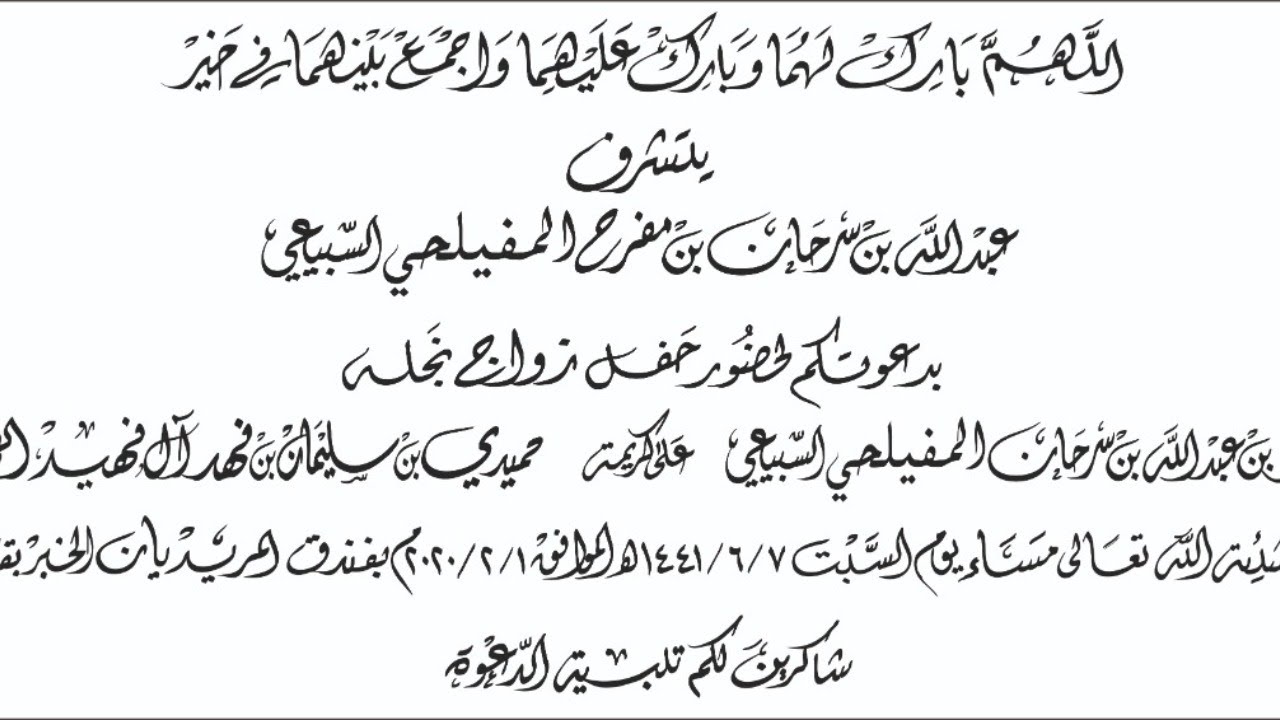 اللَّهُمَّ بَارِكْ لَهُمَا وَبَارِكْ عَلَيْهِمَا وَاجْمَعْ بَيْنَهُمَا فِي خَيْرْ
يتشرف
عبدالله بن سرحان بن مفرح المفيلحي السبيعي
بدعوتكم لحضور حفل زواج نجله
بن عبدالله بن سرحان المفيلحي السبيعي على كريمة حميدي بن سليمان بن فهد آل فهيد
الله تعالى مساء يوم السبت ١٤٤١/٦/٧هـ الموافق ٢٠٢٠/٢/١م بفندق المريديان الخبر
شاكرين لكم تلبية الدعوة